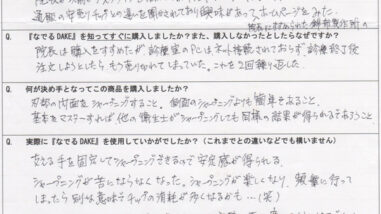 通販の安売りチップとの違いを聞かれており興味があってホームページをみた。
Q. 『なでるDAKE』を知ってすぐに購入しましたか?また、購入しなかったとしたらなぜですか?
院長は購入をすすめたが診療室のPCはネット接続されておらず診療終了後
注文しようとしたらもう売りきれてしまっていた。これを2回繰り返した。
Q. 何が決め手となってこの商品を購入しましたか?
刃部の内面をシャープニングすること。側面のシャープニングよりも簡単であること。
基本をマスターすれば他の衛生士がシャープニングしても同様の結果が得られるであろうこと。
Q. 実際に『なでるDAKE』を使用していかがでしたか?(これまでとの違いなどでも構いません)
支える手を固定してシャープニングできるので安定感が得られる。
シャープニングが苦にならなくなった。シャープニングが楽しくなり、頻繁に行って
しまったら別な意味でチップの消耗が多くなるかも…(笑)